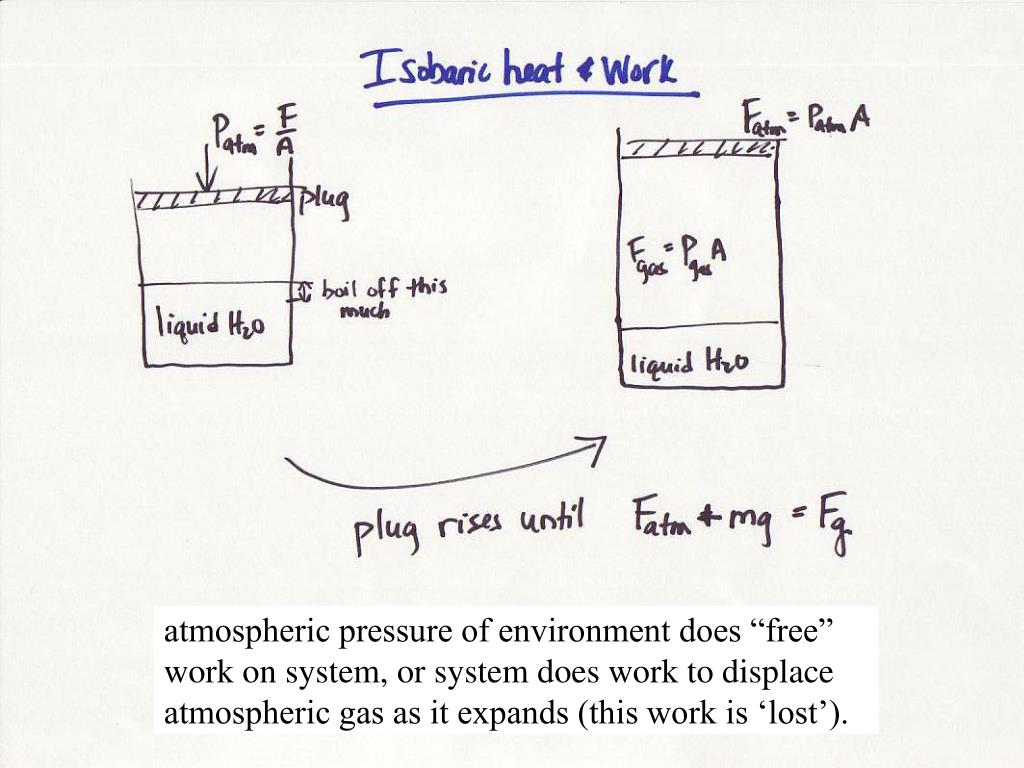 Isobaric heat & Work
P_atm = F/A
plug
boil off this
much
liquid H₂O
F_atm = P_atm A
F_gas = P_gas A
liquid H₂O
plug rises until F_atm + mg = F_g
atmospheric pressure of environment does “free”
work on system, or system does work to displace
atmospheric gas as it expands (this work is ‘lost’).